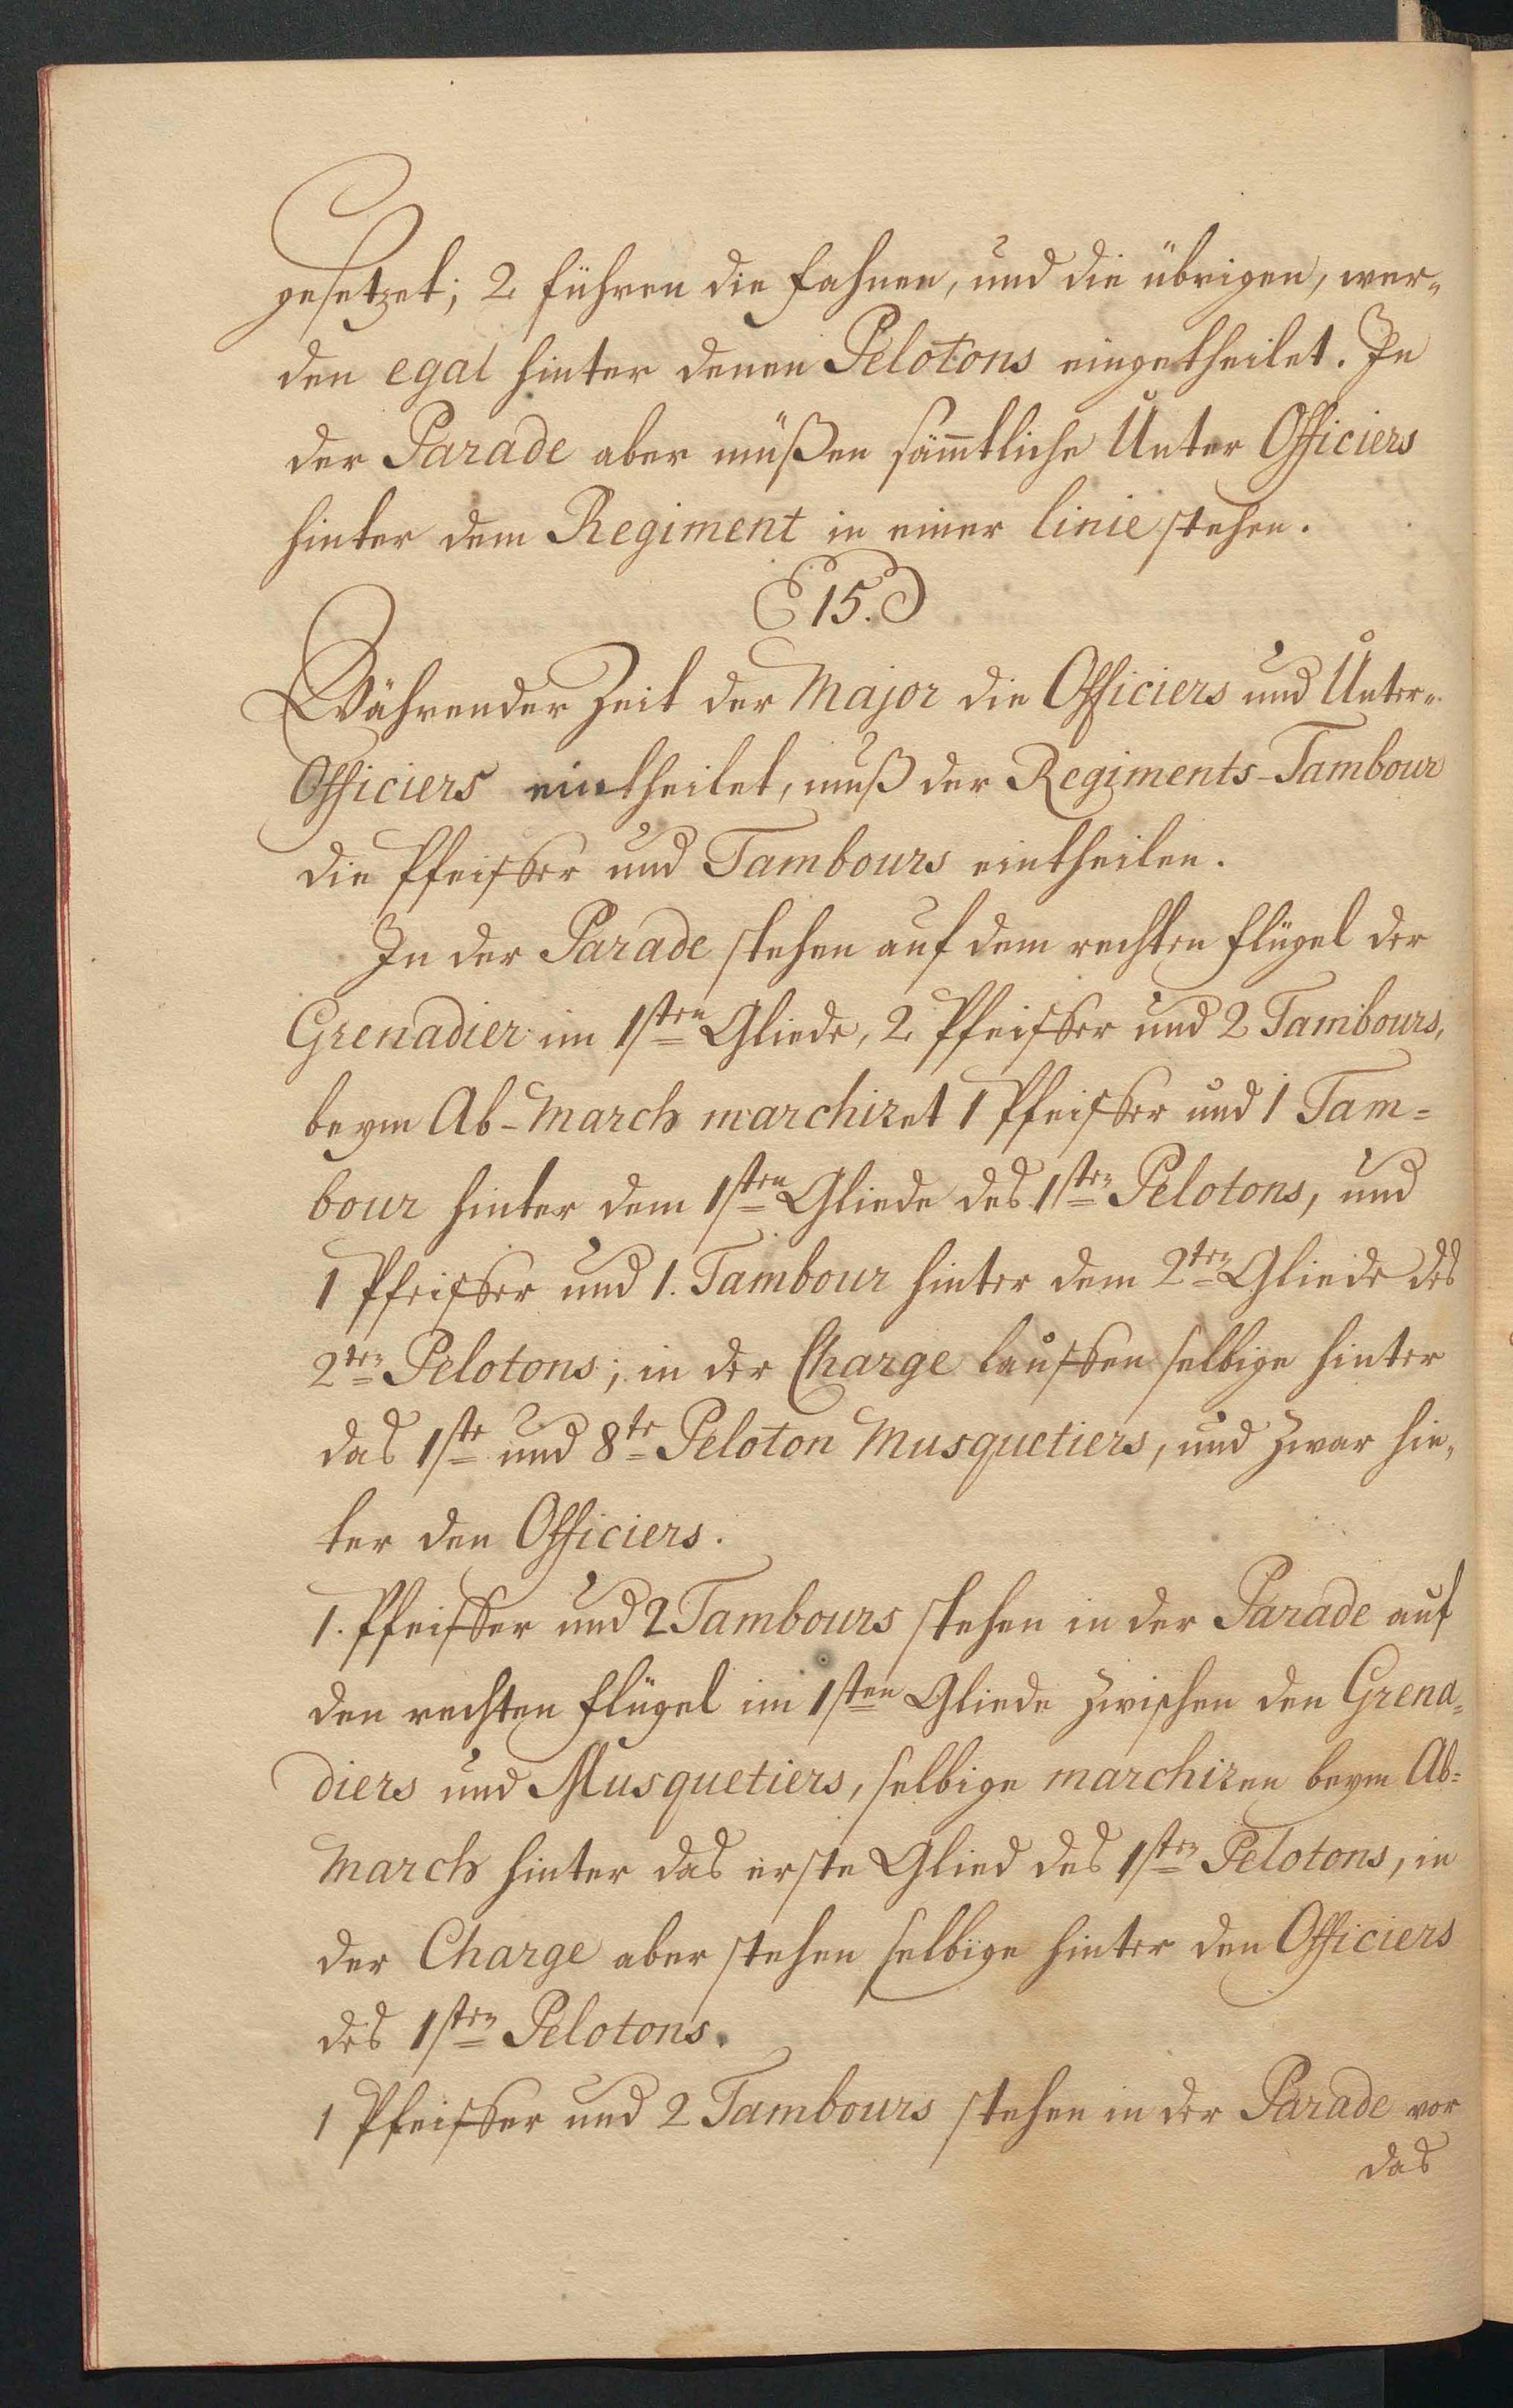 gesetzet; 2 führen die Fahnen, und die übrigen, wer-
den egal hinter denen Pelotons eingetheilet. In
der Parade aber müßen sämtliche Unter Officiers
hinter dem Regiment in einer linie stehen.
15.
Währender Zeit der Major die Officiers und Unter-
Officiers eintheilet, muß der Regiments-Tambour
die Pfeiffer und Tambours eintheilen.
In der Parade stehen auf dem rechten Flügel der
Grenadier im 1sten Gliede, 2 Pfeiffer und 2 Tambours,
beym Ab-March marchiret 1 Pfeiffer und 1 Tam=
bour hinter dem 1sten Gliede des 1sten Pelotons, und
1 Pfeiffer und 1. Tambour hinter dem 2ten Gliede des
2ten Pelotons; in der Charge lauffen selbige hinter
das 1ste und 8te Peloton Musquetiers, und zwar hin-
ter den Officiers.
1. Pfeiffer und 2 Tambours stehen in der Parade auf
den rechten Flügel im 1sten Gliede zwischen den Grena=
diers und Musquetiers, selbige marchiren beym Ab=
March hinter das erste Glied des 1sten Pelotons, in
der Charge aber stehen selbige hinter den Officiers
des 1sten Pelotons.
1 Pfeiffer und 2 Tambours stehen in der Parade vor
das